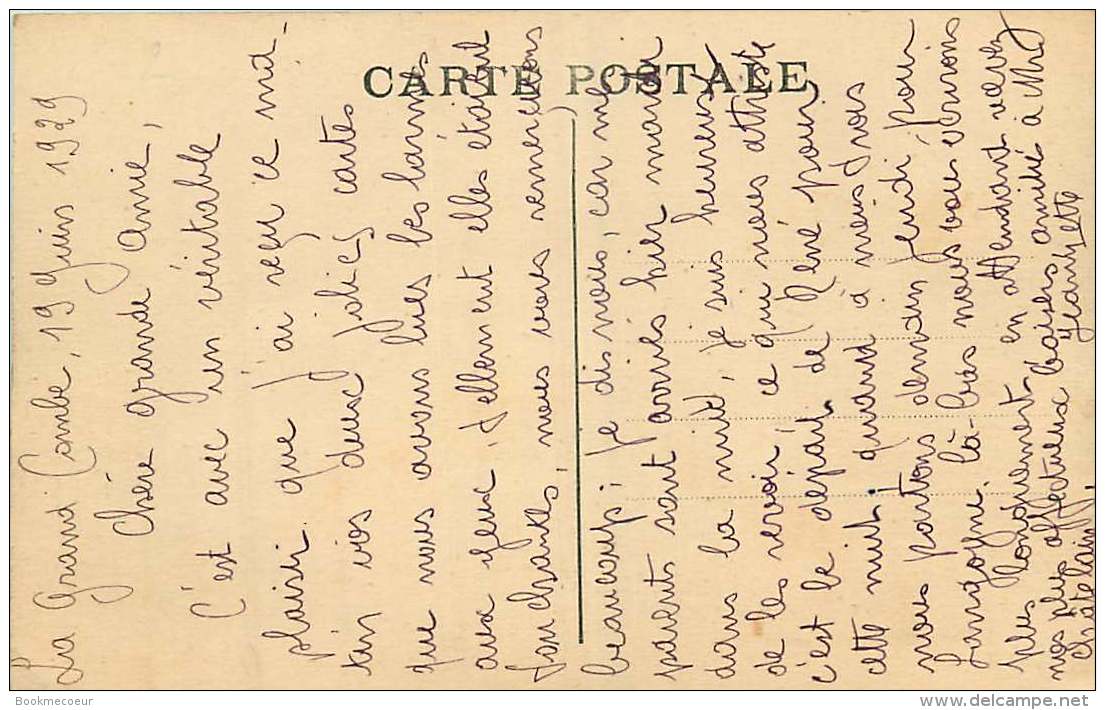 CARTE POSTALE
La Grand Combe, 19 Juin 1929
Chère grande Amie,
C'est avec un véritable
plaisir que j'ai reçu ce ma-
tin vos deux jolies cartes
que nous avons lues les larmes
aux yeux, tellement elles étaient
touchantes, nous vous remercions
beaucoup, je dis nous, car mes
parents sont arrivés hier mardi
dans la nuit, je suis heureuse
de les revoir, ce qui nous attriste
c'est le départ de René pour
cette nuit, quand à nous, nous
nous partons demain jeudi pour
Langogne. Là-bas nous vous écrirons
plus longuement, en attendant recevez
nos plus affectueux baisers amitié à Mr
Châtelain. Jeannette
Bookmecoeur
delcampe.net